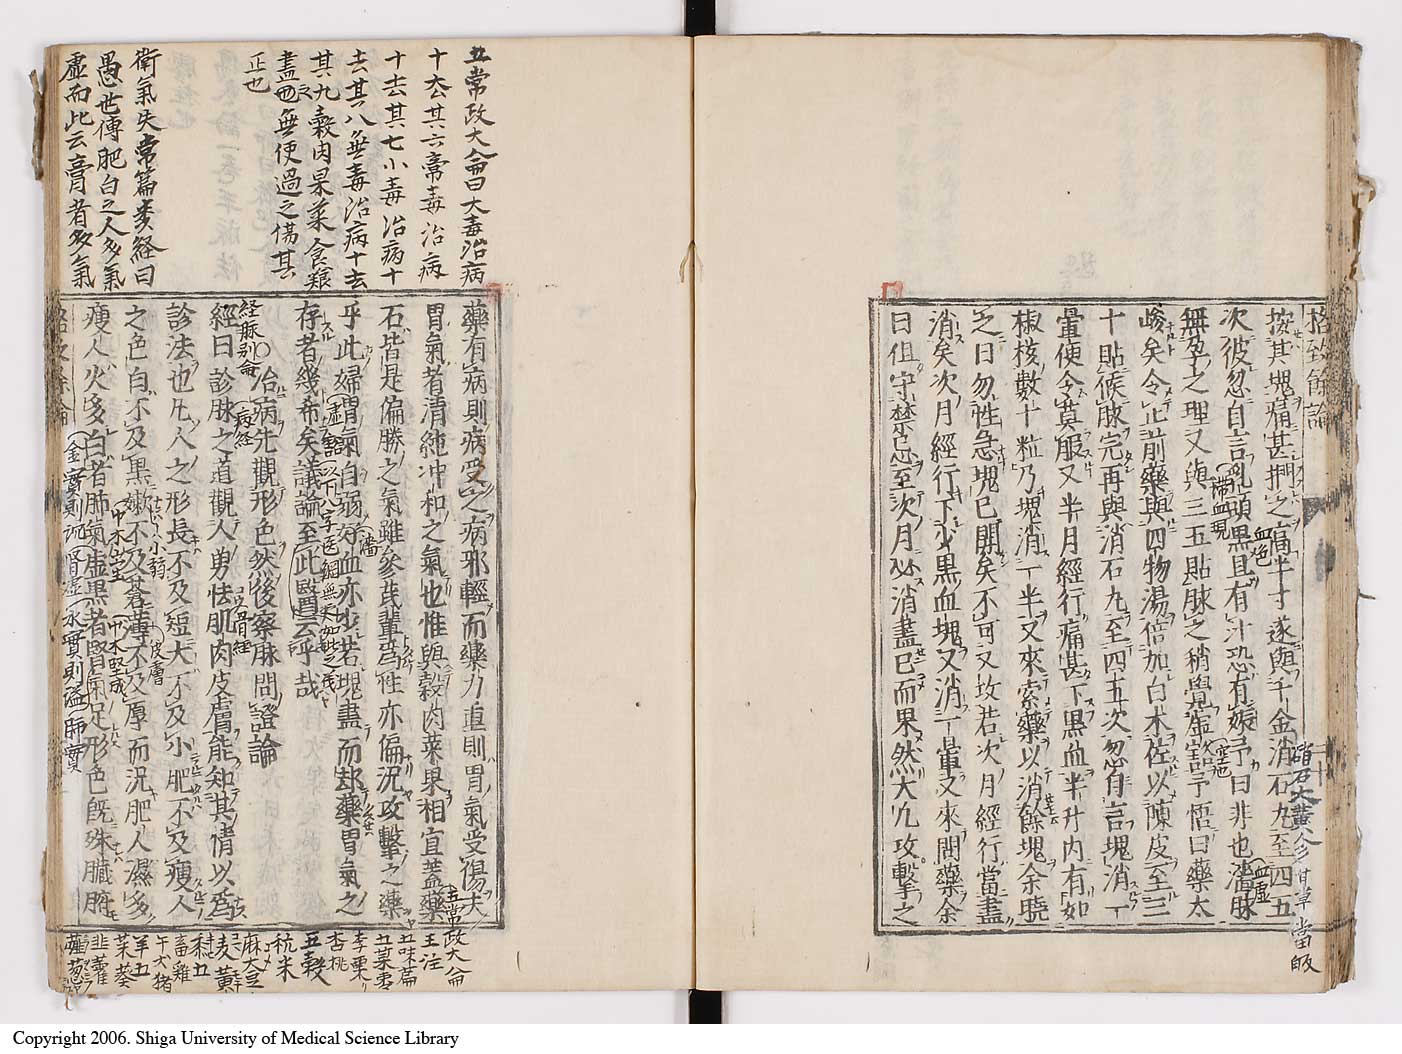 格致餘論
二十
按其塊痛甚捫之高半寸遂與千金消石丸至四五
次彼忽自言乳頭黑且有汁恐有娠予曰非也濇脉
無孕之理又與三五貼脉之稍覺虛豁予悟曰藥太
峻矣令止前藥與四物湯倍加白术佐以陳皮至三
十貼候脉完再與消石丸至四五次忽自言塊消一
暈便令莫服又半月經行痛甚下黑血半升內有如
椒核數十粒乃塊消一半又來索藥以消餘塊余曉
之曰勿性急塊已開矣不可又攻若次月經行當盡
消矣次月經行下少黑血塊又消一暈又來問藥余
曰但守禁忌至次月必消盡已而果然大凡攻擊之
血色
滯血現
空也
血虛
硝石大黃人參甘草當皈
藥有病則病受之病邪輕而藥力重則胃氣受傷夫
胃氣者清純冲和之氣也惟與穀肉菜果相宜蓋藥
石皆是偏勝之氣雖參芪輩爲性亦偏況攻擊之藥
乎此婦胃氣自弱好血亦少若塊盡而却藥胃氣之
存者幾希矣議論至此醫云乎哉
治病先觀形色然後察脉問證論
經曰診脉之道觀人勇怯肌肉皮膚能知其情以爲
診法也凡人之形長不及短大不及小肥不及瘦人
之色白不及黑嫩不及蒼薄不及厚而況肥人濕多
瘦人火多白者肺氣虛黑者腎氣足形色旣殊臟腑
五常政大侖曰大毒治病
十去其六常毒治病
十去其七小毒治病十
去其八無毒治病十去
其九穀肉果菜食養
盡之無使過之傷其
正也
衛氣失常篇類経曰
愚世傳肥白之人多氣
虛而此云膏者多氣
経脉別侖
皮膚
五常政大侖
王注
五味篇
五菓棗
李栗
杏桃
五穀
秔米
麻大豆
麦黃
五
畜雞
牛犬猪
羊五
菜葵
韭藿
薤葱